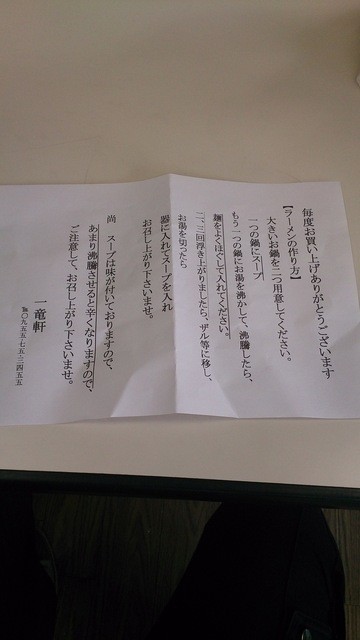 毎度お買い上げありがとうございます
【ラーメンの作り方】
大きいお鍋を二つ用意してください。
一つの鍋にスープ
もう一つの鍋にお湯を沸かして、沸騰したら、
麺をよくほぐして入れてください。
二、三回浮き上がりましたら、ザル等に移し、
お湯を切ったら
器に入れてスープを入れ
お召し上がり下さいませ。
尚 スープは味が付いておりますので、
あまり沸騰させると辛くなりますので、
ご注意して、お召し上がり下さいませ。
一竜軒
℡〇九五五-七五-三四五五